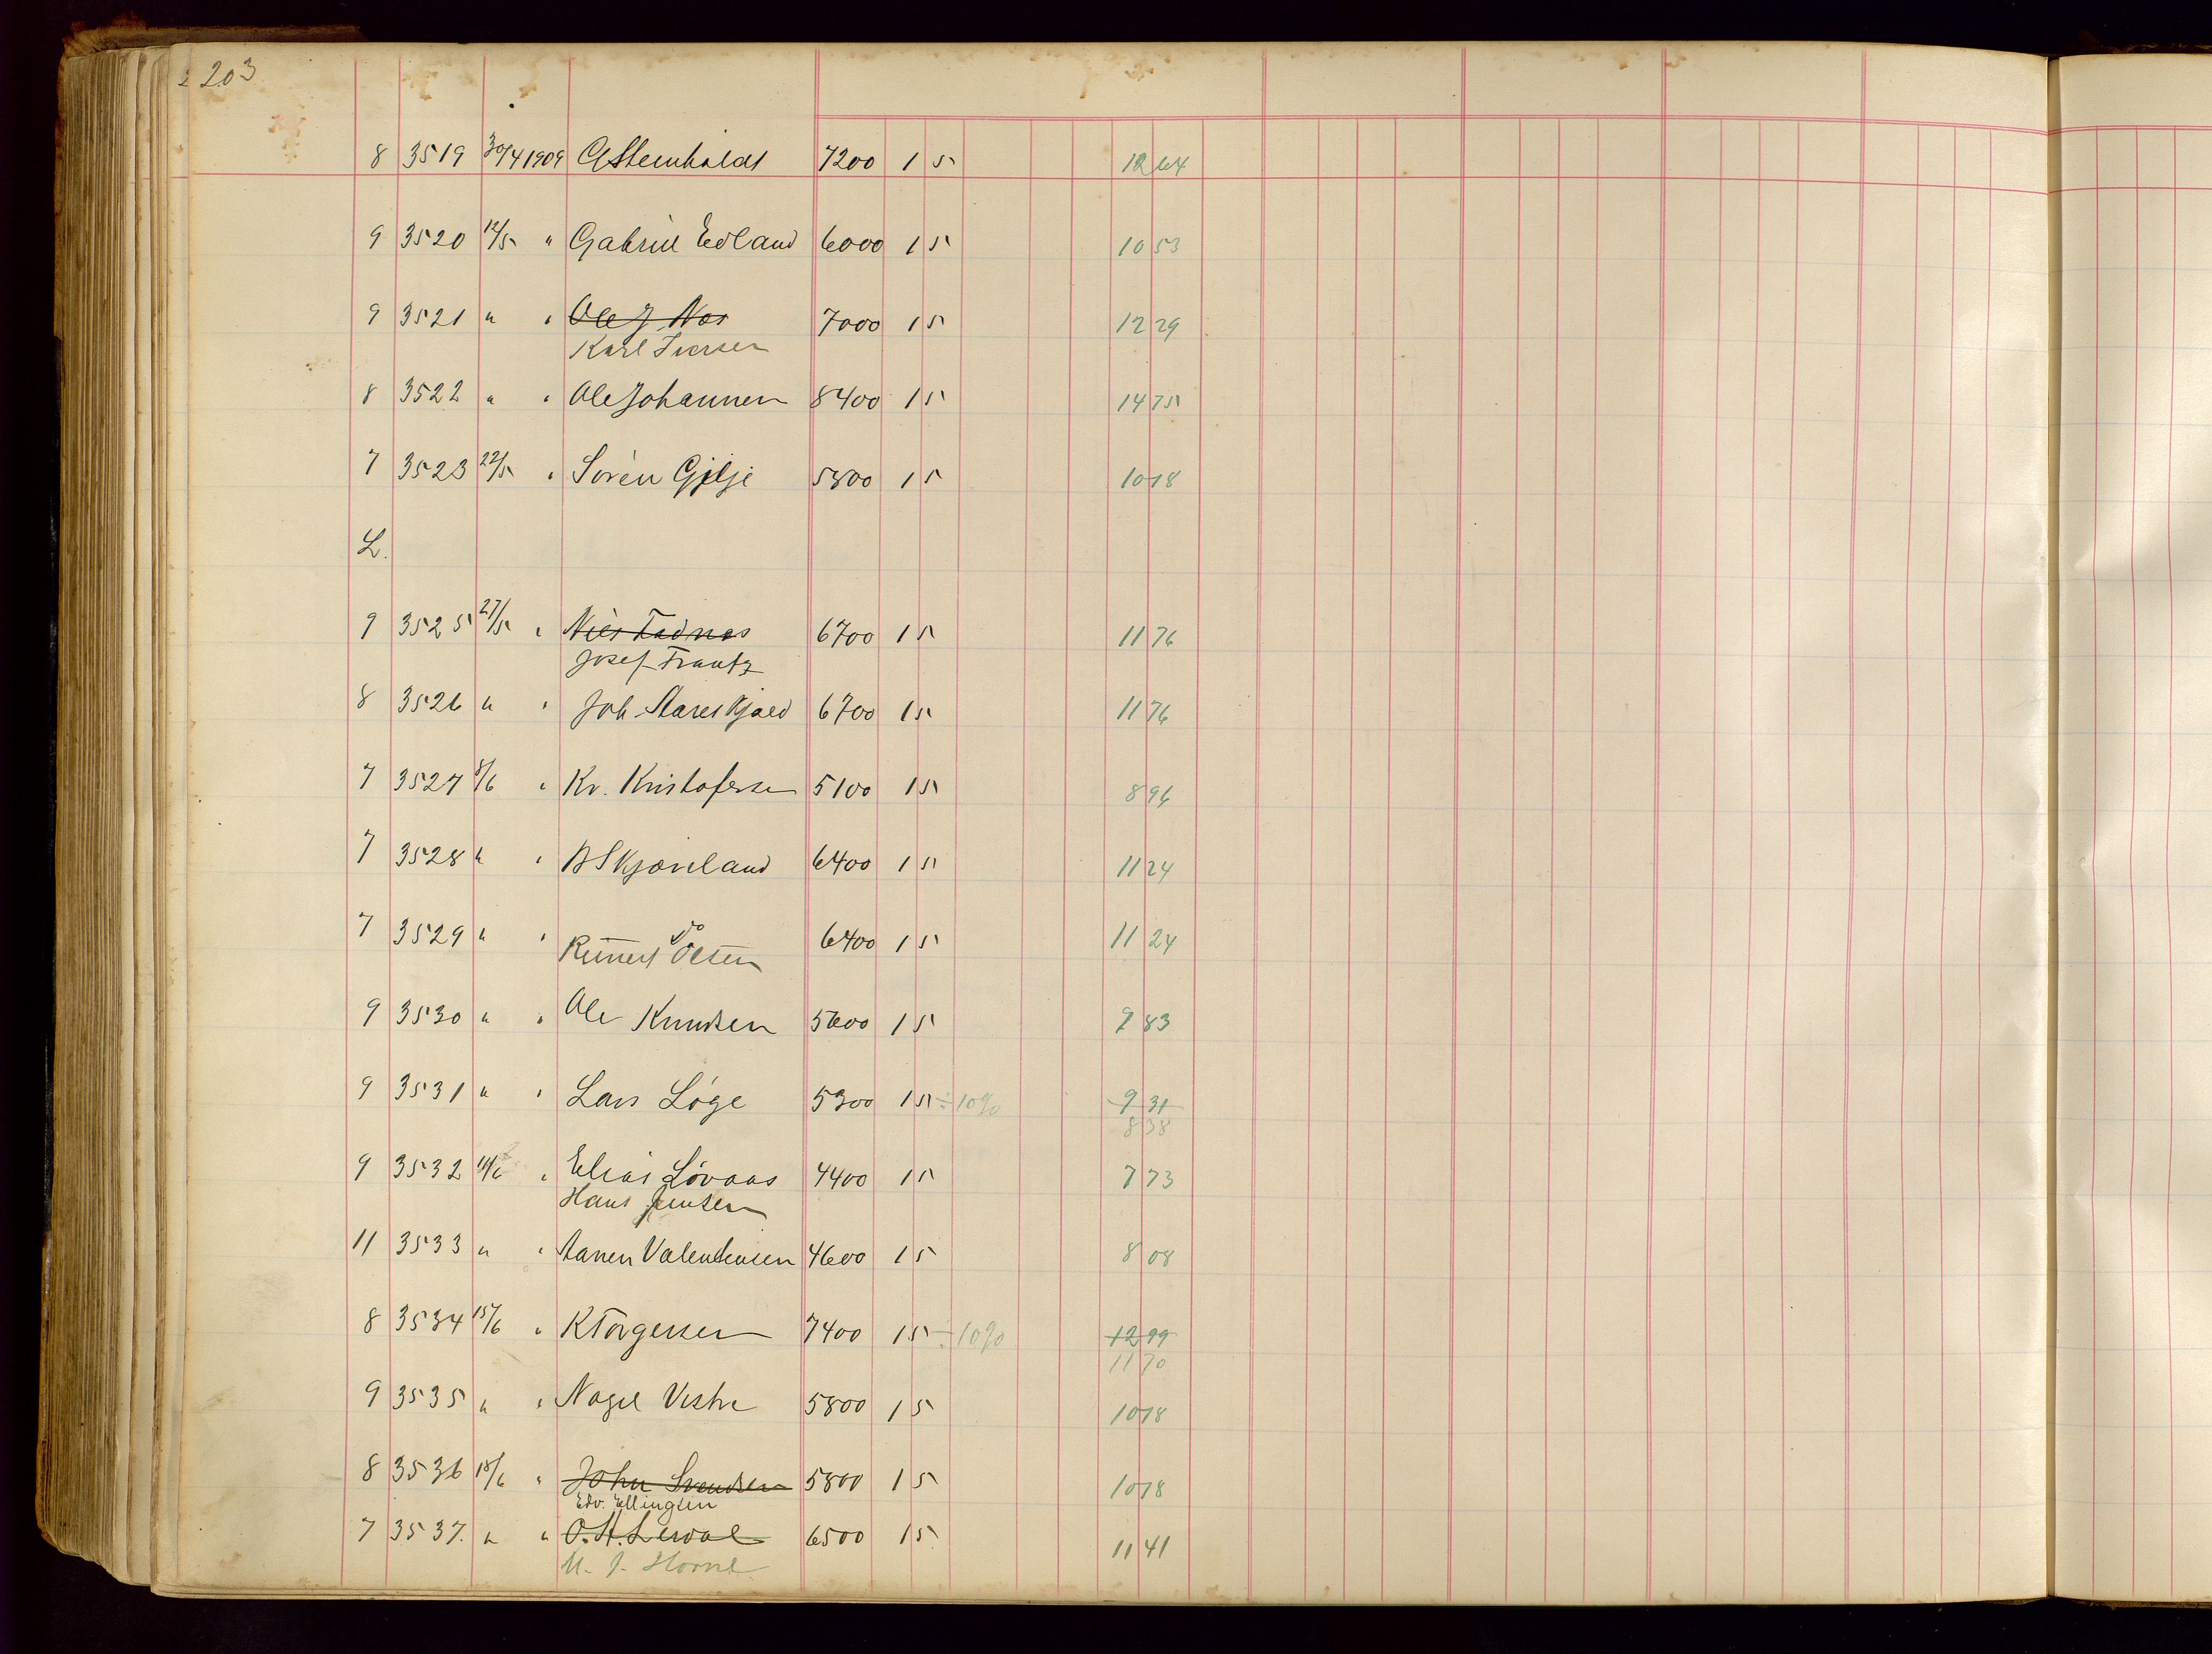 203
8 3519 30/4 1909 7200 1 5 12 64
9 3520 12/5 " Gabriel Edland 6000 1 5 10 53
9 3521 " " Ole J. Nos 7000 1 5 12 29
Karl Iversen
8 3522 " " Ole Johannesen 8400 1 5 14 75
7 3523 22/5 " Sören Gjilje 5800 1 5 10 18
L.
9 3525 27/5 " Nils Tadnes 6700 1 5 11 76
Josef Frantz
8 3526 " " Joh. 6700 1 5 11 76
7 3527 8/6 " Kr. Kristofersen 5100 1 5 8 96
7 3528 " " B Skjæveland 6400 1 5 11 24
7 3529 " " do 6400 1 5 11 24
Reinert Olsen
9 3530 " " Ole Knudsen 5600 1 5 9 83
9 3531 " " Lars Löge 5300 1 5 ÷ 10% 9 31
8 38
9 3532 14/6 " Elias Lövaas 4400 1 5 7 73
Hans Jensen
11 3533 " " Aanen Valentensen 4600 1 5 8 08
8 3534 15/6 " K Torgersen 7400 1 5 ÷ 10% 12 99
11 70
9 3535 " " Nagel Vestre 5800 1 5 10 18
8 3536 18/6 " John Svendsen 5800 1 5 10 18
Edv. Ellingsen
7 3537. " " O. H. Lerval 6500 1 5 11 41
M. J. Horne